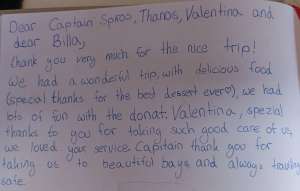 Dear Captain Spiros, Thanos, Valentina and
dear Billa,
thank you very much for the nice trip!
We had a wonderful trip, with delicious food
(special thanks for the best dessert ever♡) we had
lots of fun with the donat. Valentina, spezial
thanks to you for taking such good care of us,
we loved your service. Captain thank you for
taking us to beautiful bays and always traveling
safe.